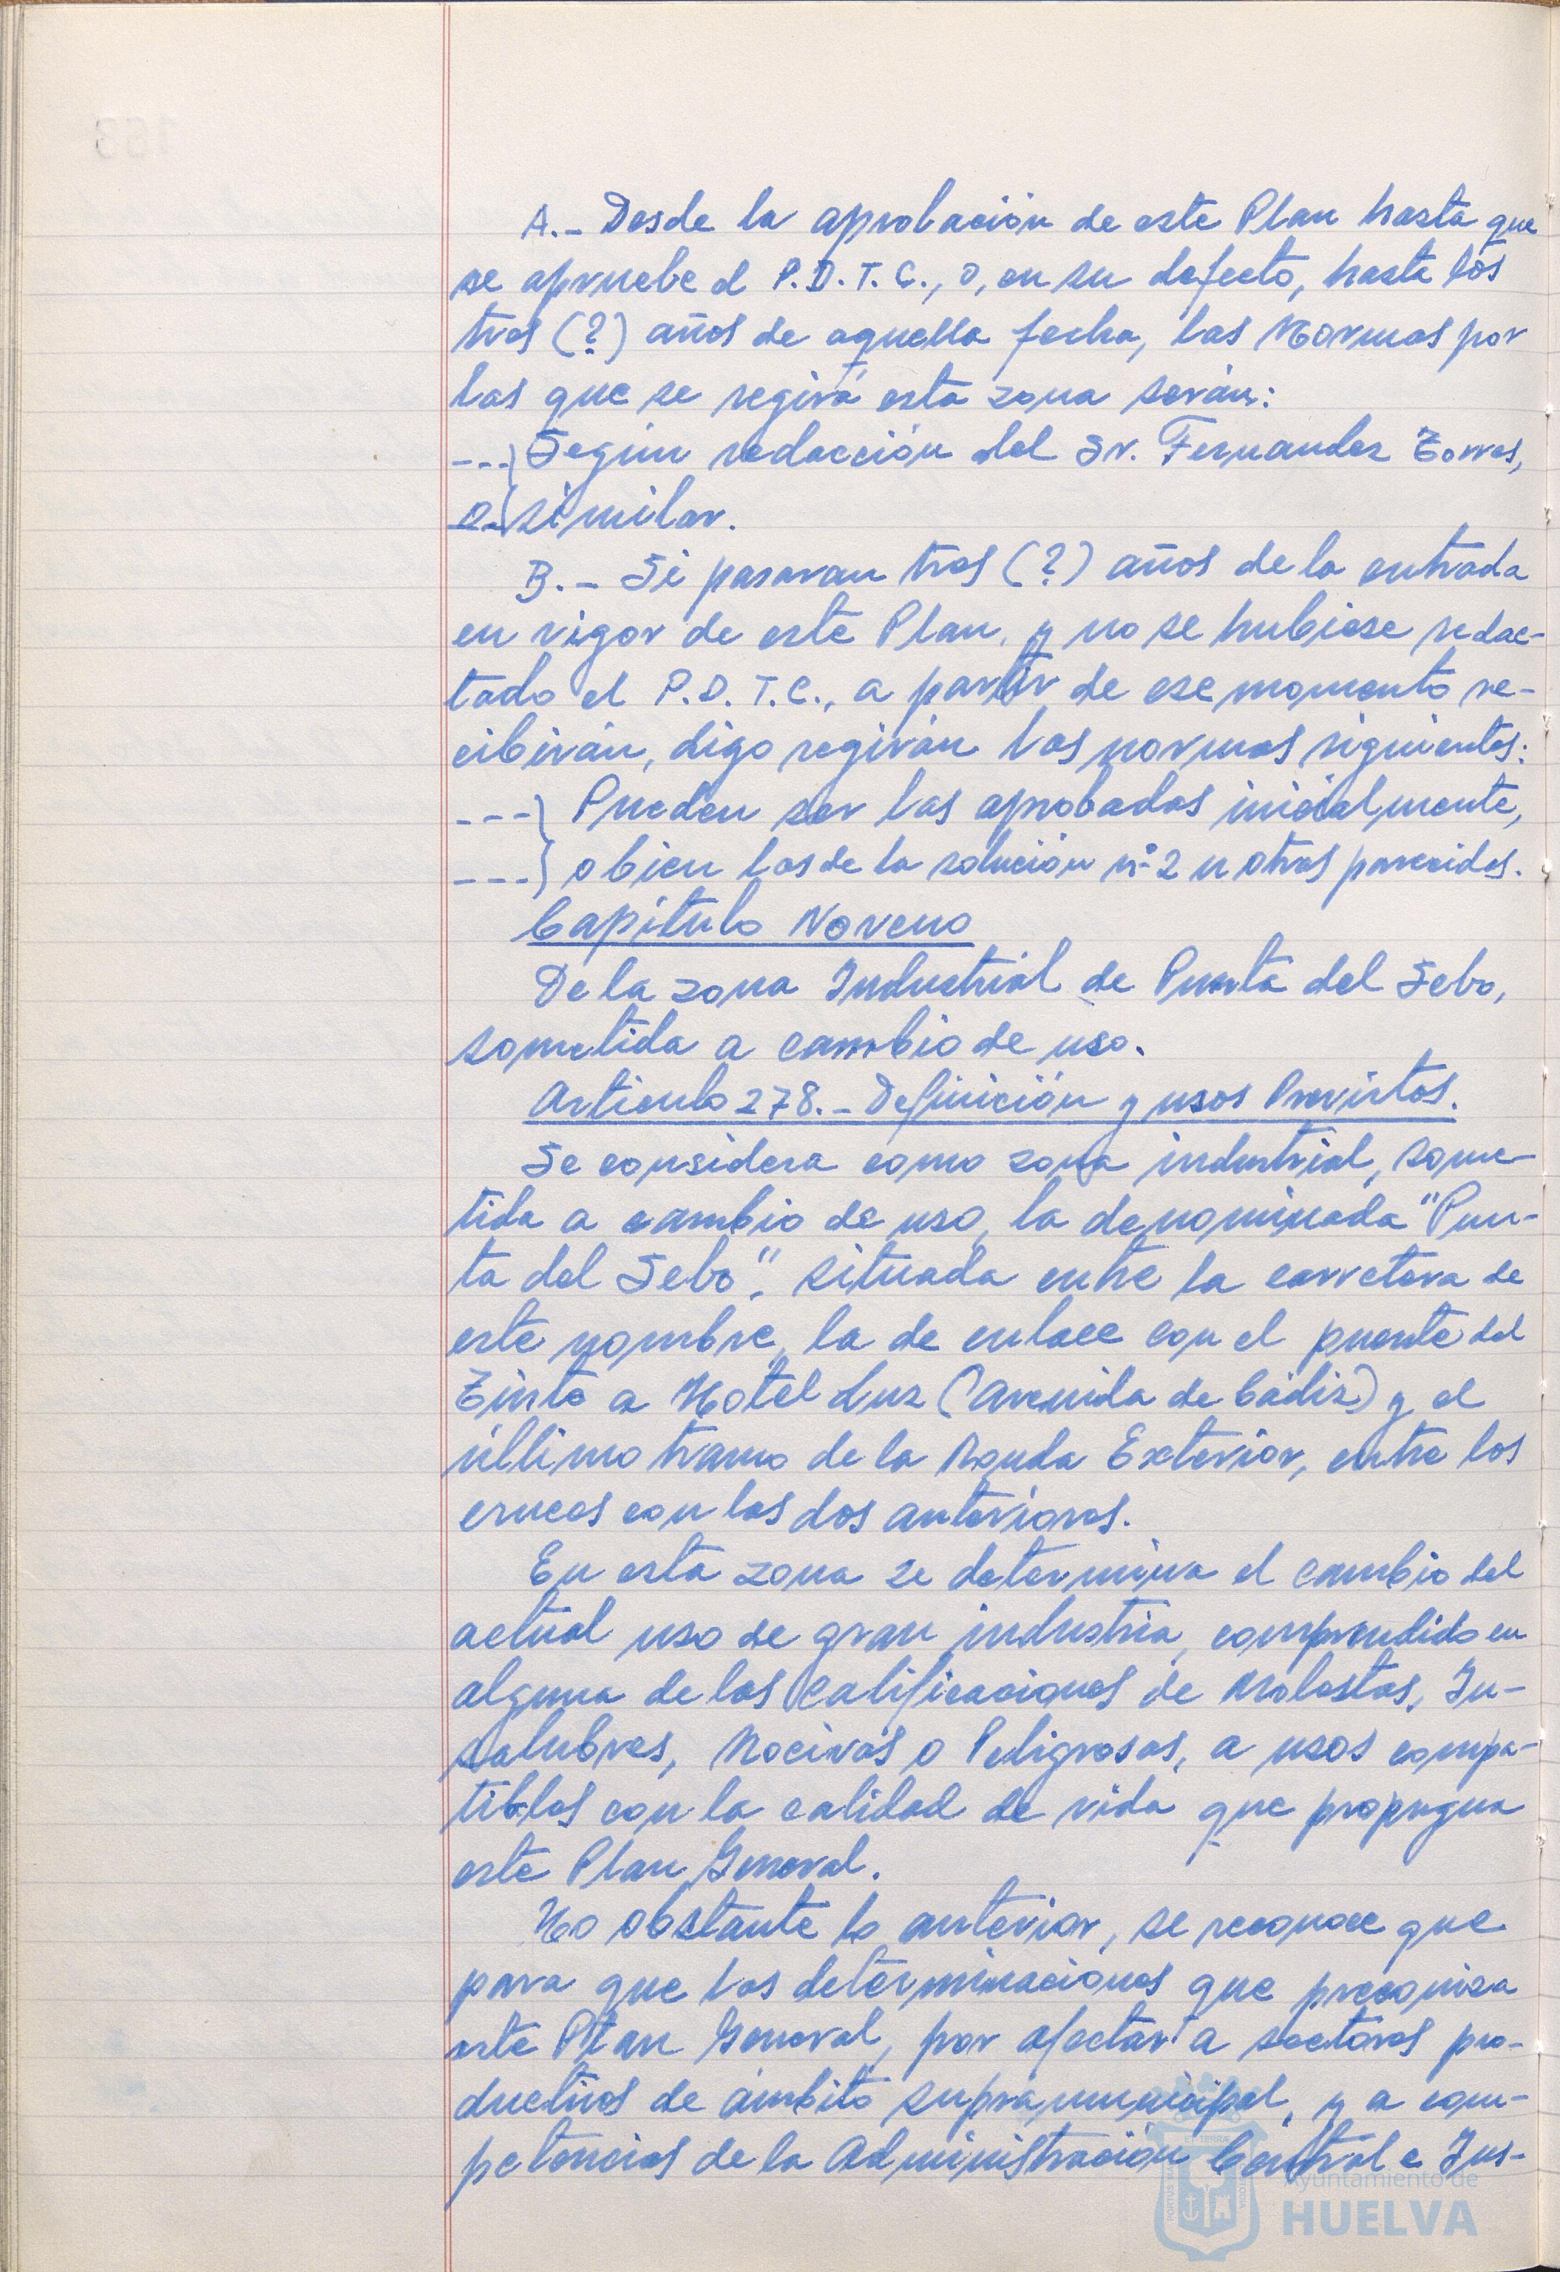 A.- Desde la aprobación de este Plan hasta que
se apruebe el P.D.T.C., o, en su defecto, hasta los
tres (?) años de aquella fecha, las Normas por
las que se regirá esta zona serán:
---} Según redacción del Sr. Fernandez Torres,
---} o similar.
B.- Si pasaran tres (?) años de la entrada
en vigor de este Plan, y no se hubiese redac-
tado el P.D.T.C., a partir de ese momento re-
cibirán, digo regirán las normas siguientes:
---} Pueden ser las aprobadas inicialmente,
---} o bien las de la solución nº 2 u otras parecidas.
Capítulo Noveno
De la zona Industrial de Punta del Sebo,
sometida a cambio de uso.
Articulo 278.- Definición y usos Previstos.
Se considera como zona industrial, some-
tida a cambio de uso, la denominada "Pun-
ta del Sebo", situada entre la carretera de
este nombre, la de enlace con el puente del
Tinto a Hotel Luz (Avenida de Cádiz) y el
último tramo de la Ronda Exterior, entre los
cruces con las dos anteriores.
En esta zona se determina el cambio del
actual uso de gran industria, comprendido en
alguna de las Calificaciones de Molestas, In-
salubres, Nocivas o Peligrosas, a usos compa-
tibles con la calidad de vida que propugna
este Plan General.
No obstante lo anterior, se reconoce que
para que las determinaciones que preconiza
este Plan General, por afectar a sectores pro-
ductivos de ámbito supramunicipal, y a com-
petencias de la Administración Central e Ins-
Ayuntamiento de
HUELVA